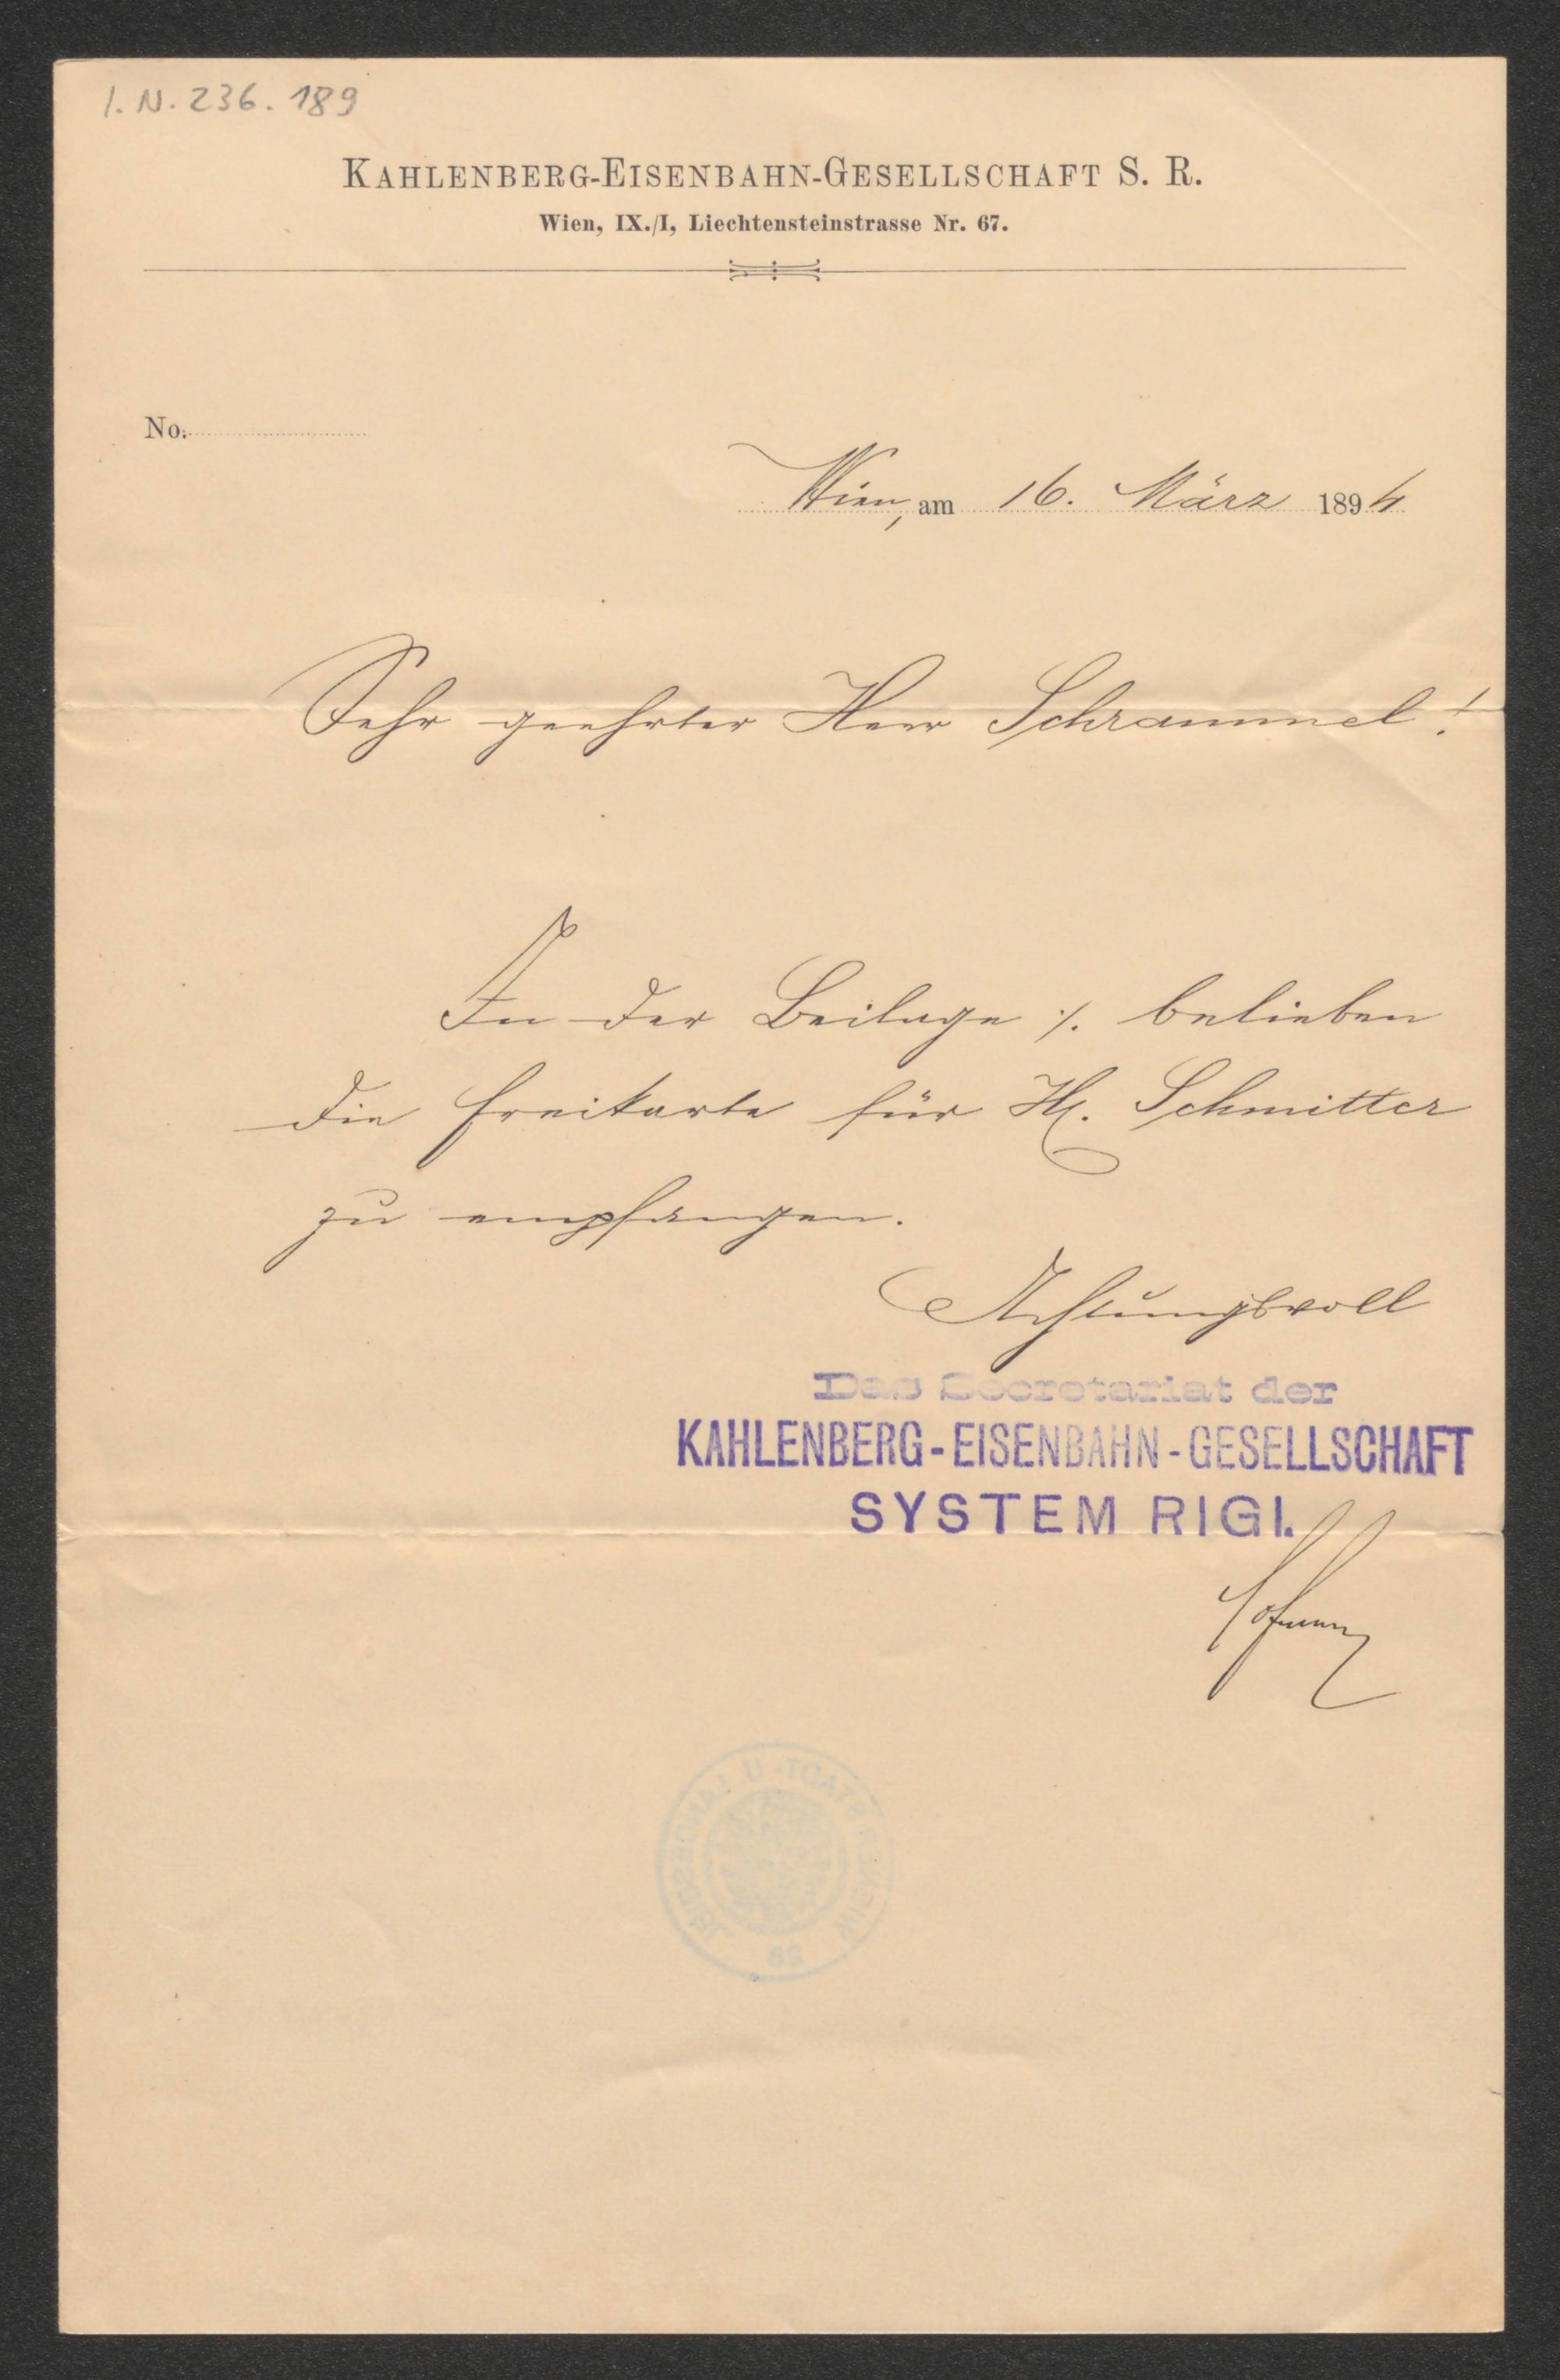 I. N. 236. 189
KAHLENBERG-EISENBAHN-GESELLSCHAFT S. R.
Wien, IX./I, Liechtensteinstrasse Nr. 67.
No.
Wien, am 16. März 1894
Sehr geehrter Herr Schrammel!
In der Beilage ·/. belieben
die Freikarte für H. Schmitter
zu empfangen.
Achtungsvoll
Das Secretariat der
KAHLENBERG-EISENBAHN-GESELLSCHAFT
SYSTEM RIGI.